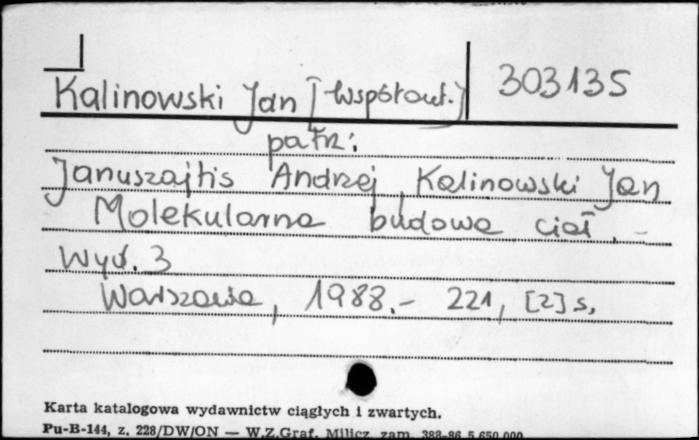 Kalinowski Jan [współaut.] 303135
patrz:
Januszajtis Andrzej, Kalinowski Jan
Molekularna budowa ciał. -
Wyd. 3
Warszawa, 1988.- 221, [2] s.
Karta katalogowa wydawnictw ciągłych i zwartych.
Pu-B-144, z. 228/DW/ON — W.Z.Graf. Milicz, zam. 388-86 5.650.000